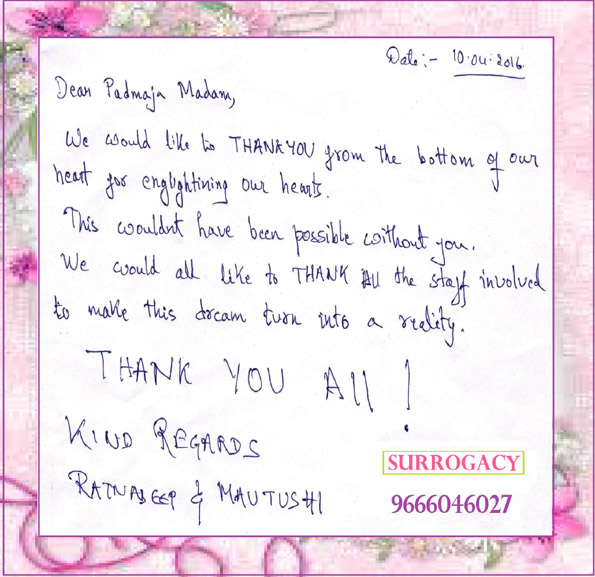 Date:- 10.04.2016
Dear Padmaja Madam,
We would like to THANKYOU from the bottom of our
heart for englightining our hearts.
This wouldnt have been possible without you.
We would all like to THANK All the staff involved
to make this dream turn into a reality.
THANK YOU All!
KIND REGARDS
RATNADEEP & MAUTUSHI
SURROGACY
9666046027